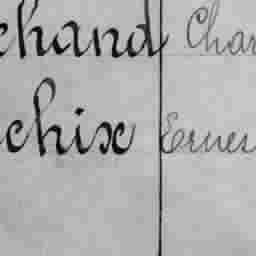 chand Char
chix Ernes